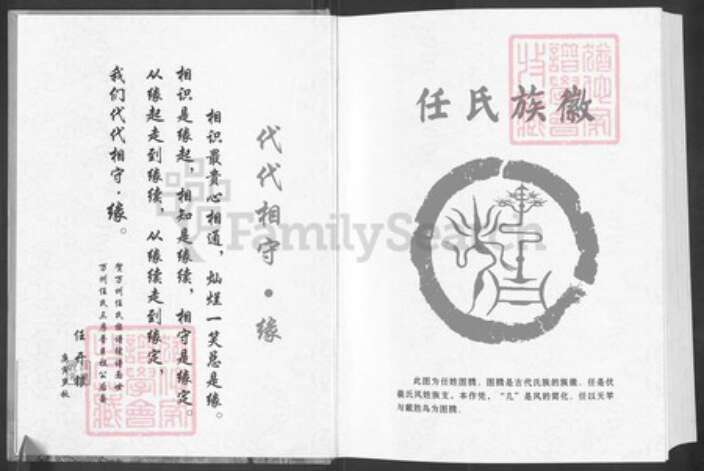 代代相守·缘
相识最贵心相通，灿烂一笑总是缘。
相识是缘起，相知是缘续，相守是缘定。
从缘起走到缘续，从缘续走到缘定，
我们代代相守·缘。
贺万州任氏族谱续谱
万州任氏三房
任
庚寅
FamilySearch
任氏族徽
此图为任姓图腾。图腾是古代氏族的族徽。任是伏
羲氏风姓族支。本作凭，“几”是风的简化。任以天竿
与戴胜鸟为图腾。